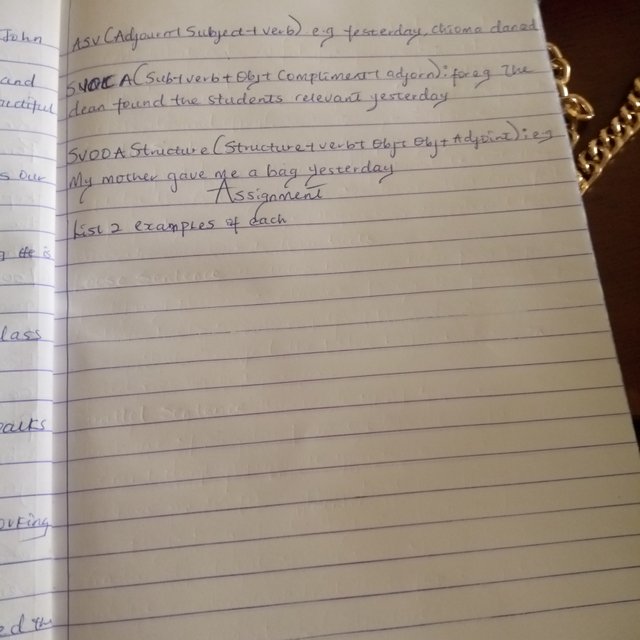 John
and
autiful
s our
g He is
lass
arks
orking
ed the
ASV (Adjount + Subject + verb) e.g Yesterday, chioma danced
SVOCA (Sub + verb + Obj + Compliment + adjorn): for eg The
dean found the students relevant yesterday
SVOOA Structure (Structure + verb + Obj + Obj + Adjoint): eg
My mother gave me a bag yesterday
Assignment
List 2 examples of each